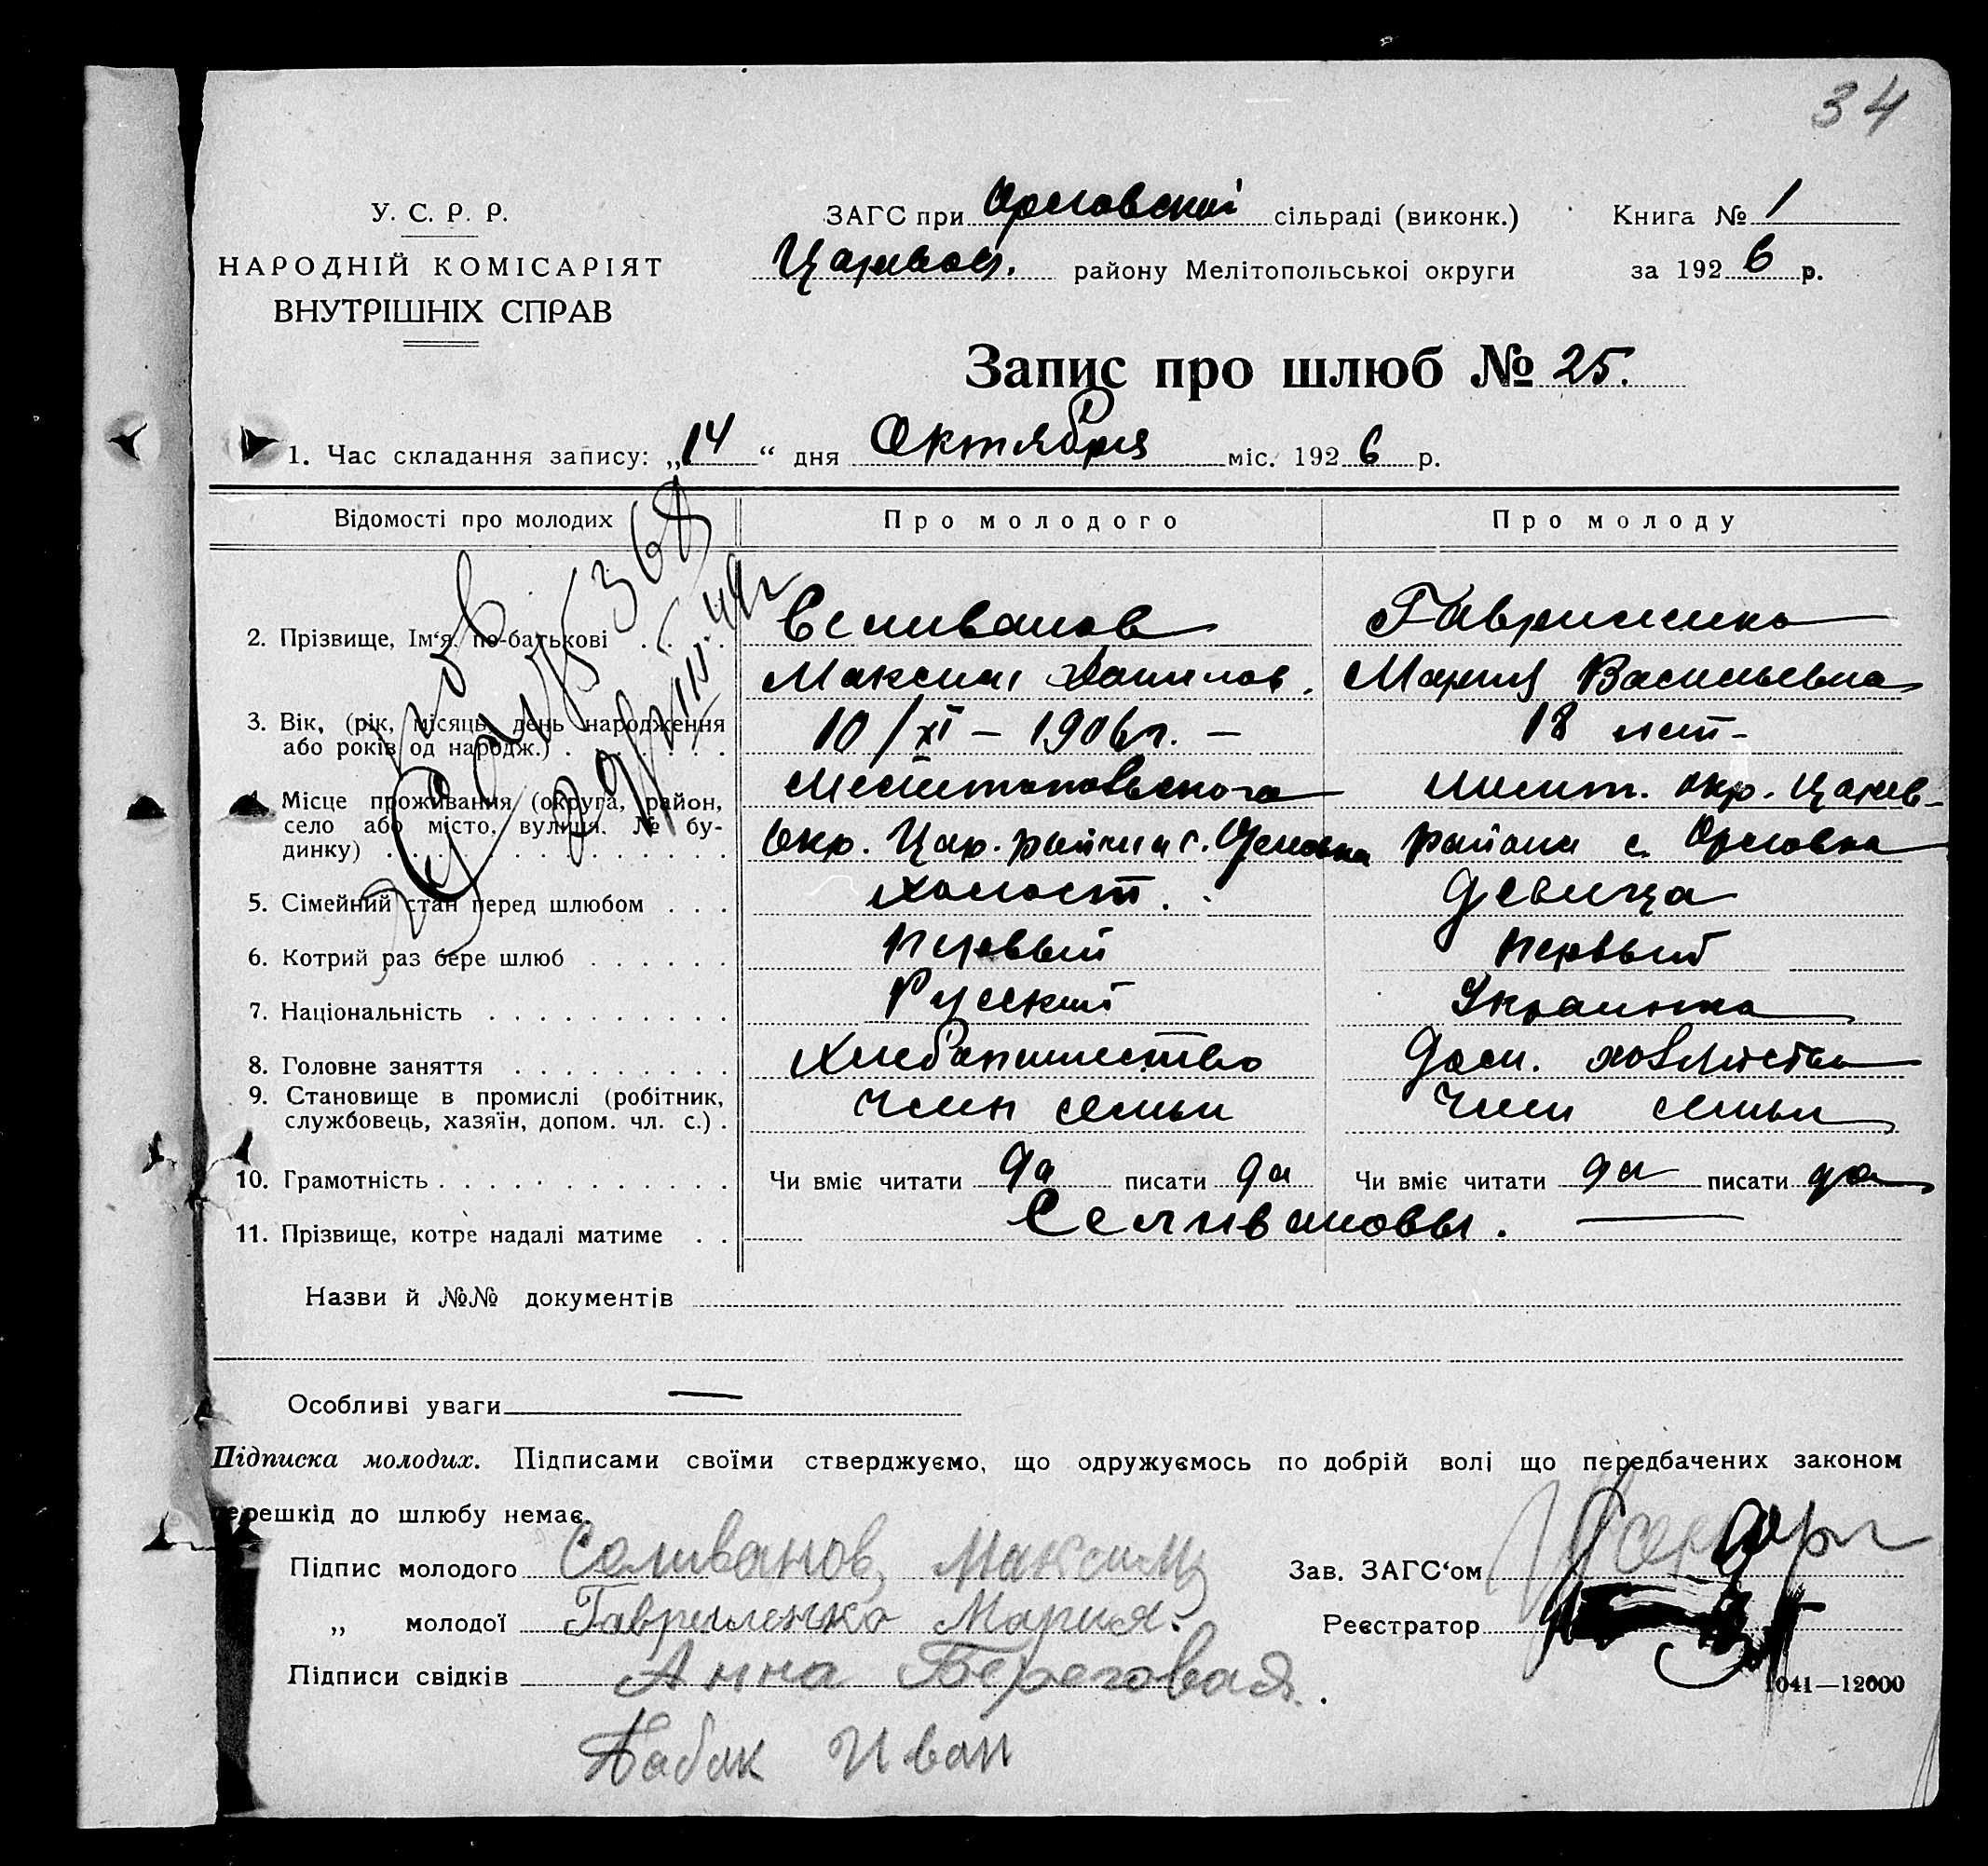 34
У. С. Р. Р.
НАРОДНІЙ КОМІСАРІЯТ
ВНУТРІШНІХ СПРАВ
ЗАГС при Орловской сільраді (виконк.)
Книга № 1
району Мелітопольської округи
за 1926 р.
Запис про шлюб № 25.
1. Час складання запису: „14“ дня Октября міс. 1926 р.
Відомості про молодих
Про молодого
Про молоду
2. Прізвище, Ім'я, по-батькові
Селиванов
Гавриленко
Максим Данилов.
Мария Васильевна
3. Вік, (рік, місяць, день народження або років од народж.)
10/XI – 1906 г. –
18 лет -
4. Місце проживання (округа, район, село або місто, вулиця, № будинку)
Мелитопольского
Мелит. окр. Царев-
Окр. Цар. района с. Орловка
района с. Орловка
5. Сімейний стан перед шлюбом
холост.
девица
6. Котрий раз бере шлюб
первый
первый
7. Національність
Русский
Украинка
8. Головне заняття
Хлебопашество
дом. хозяйство
9. Становище в промислі (робітник, службовець, хазяїн, допом. чл. с.)
член семьи
член семьи
10. Грамотність
Чи вміє читати да писати да
Чи вміє читати да писати да
11. Прізвище, котре надалі матиме
Селивановы.
Назви й №№ документів
Особливі уваги —
Підписка молодих. Підписами своїми стверджуємо, що одружуємось по добрій волі що передбачених законом
перешкід до шлюбу немає.
Підпис молодого Селиванов Максим
Зав. ЗАГС'ом
„ молодої Гавриленко Мария.
Реєстратор
Підписи свідків Анна Береговая.
1041—12000
Бабак Иван